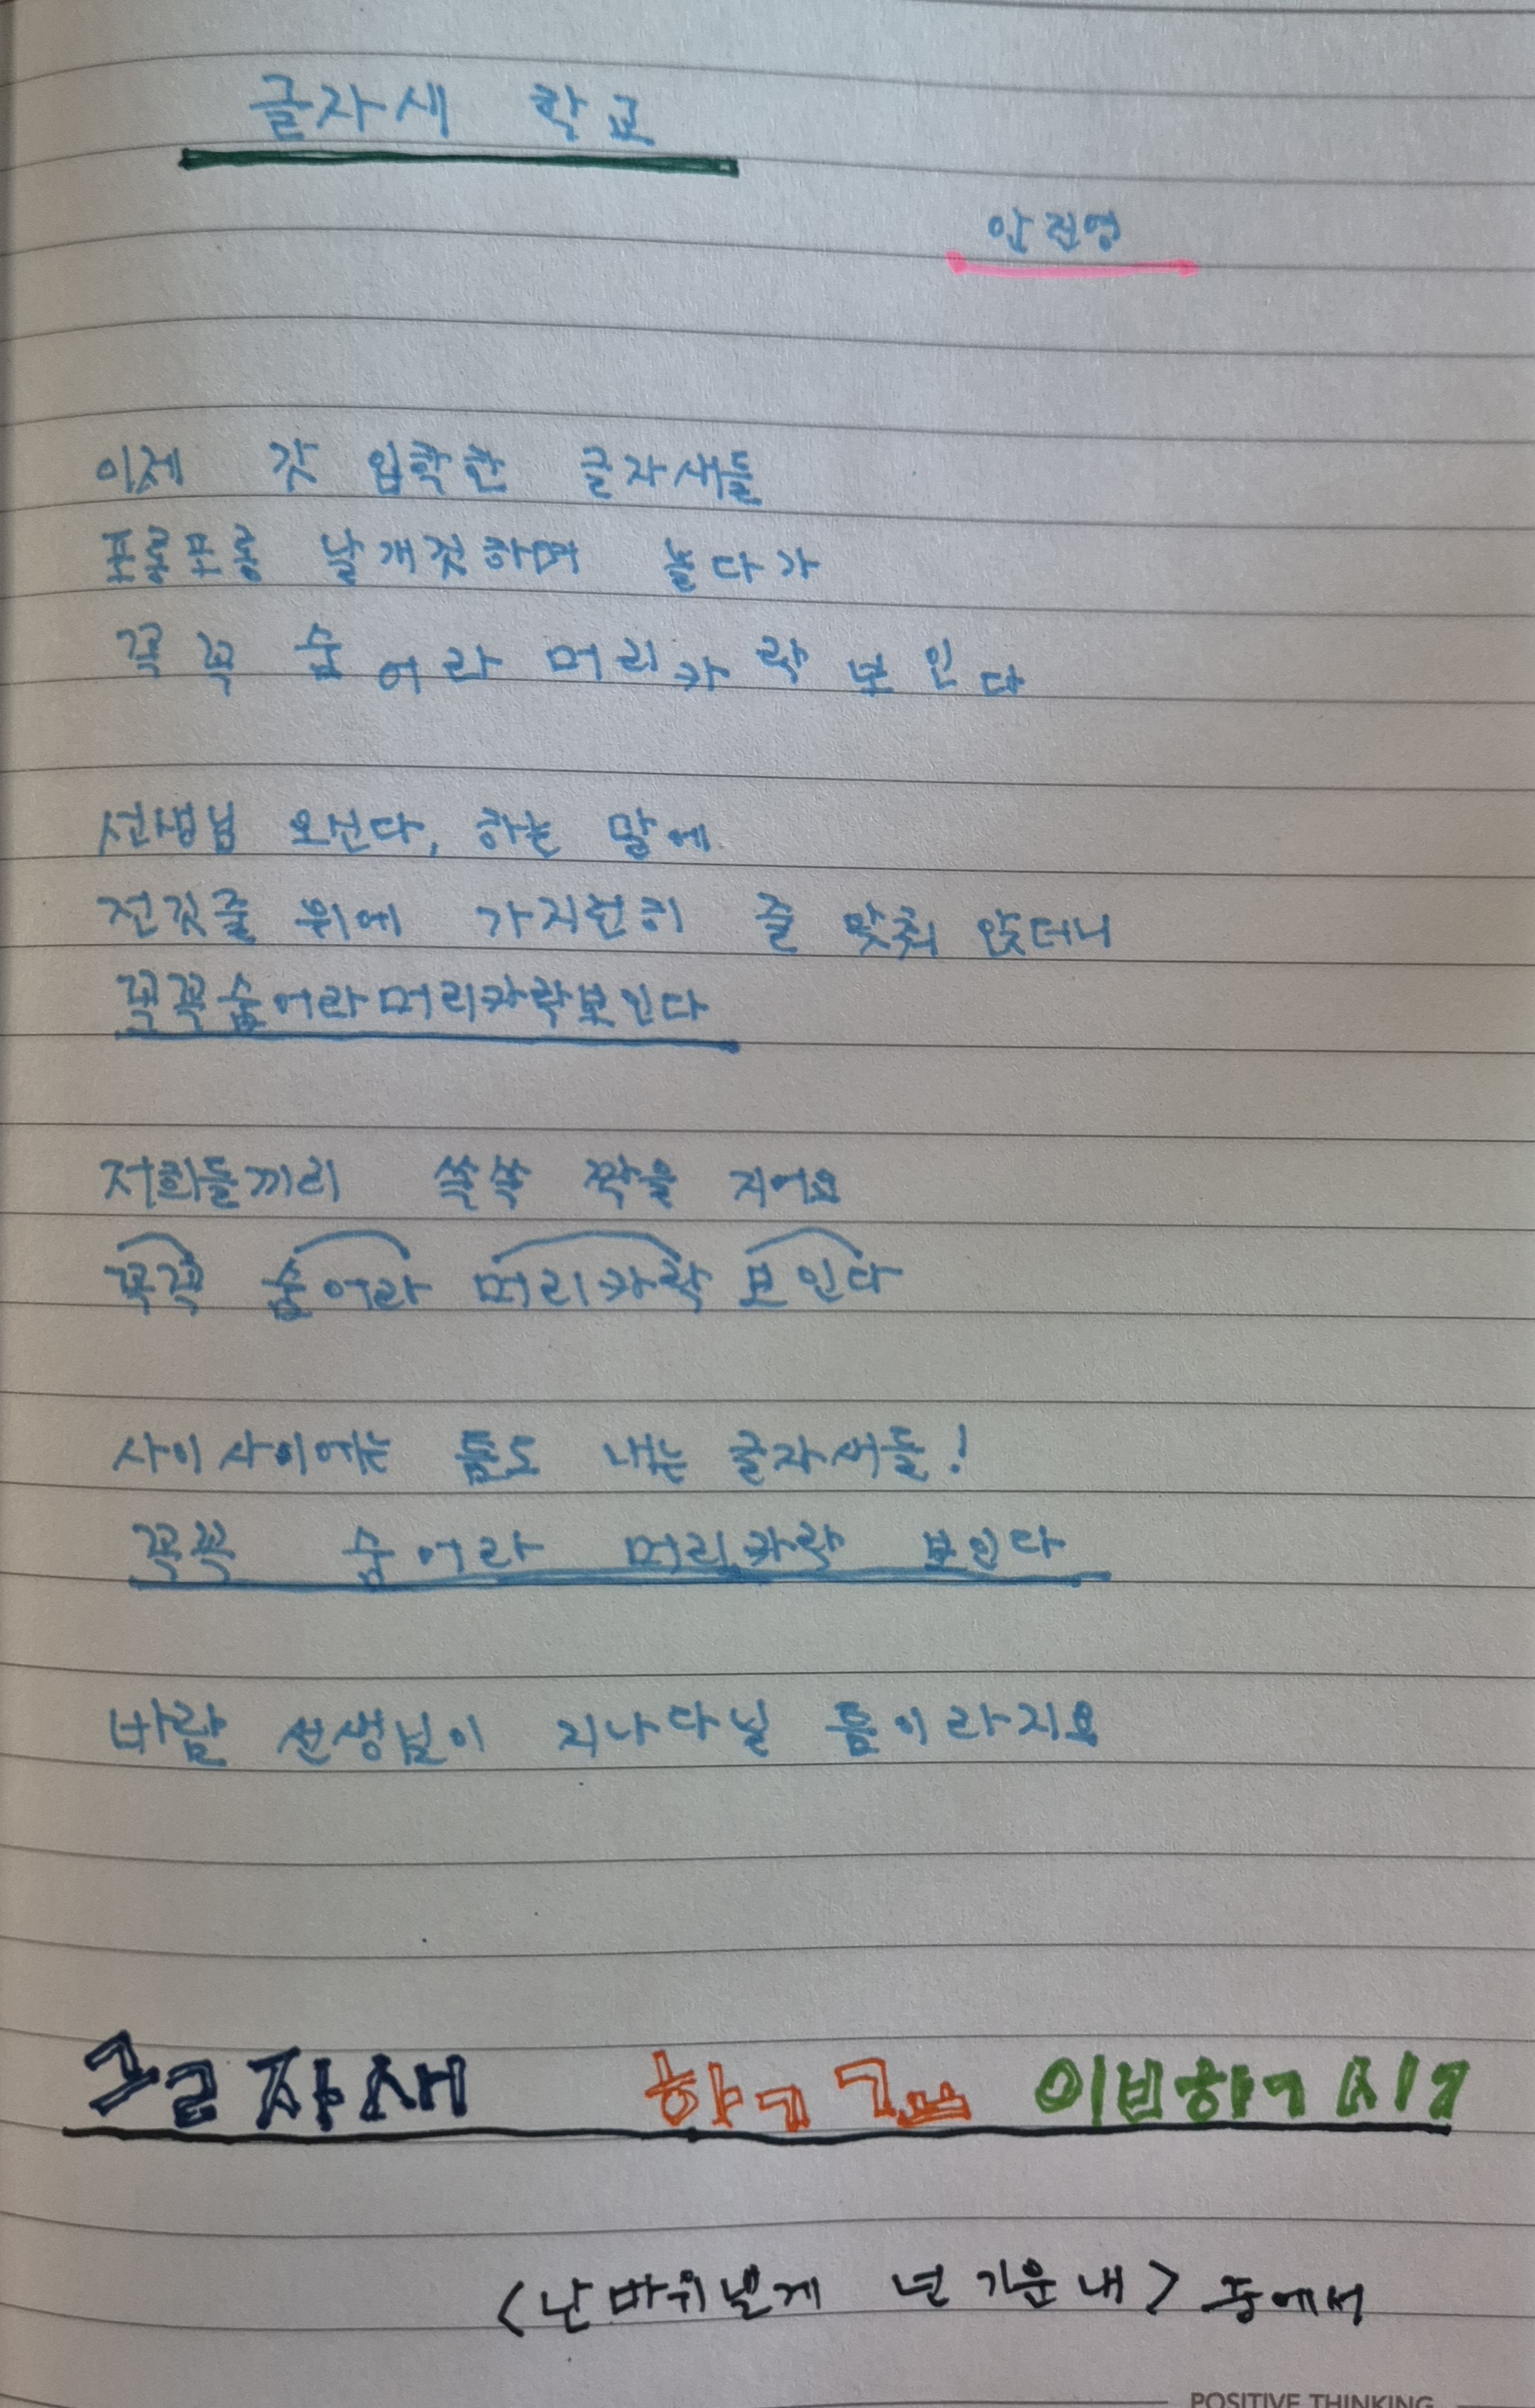 글자새 학교
안진영
이제 갓 입학한 글자새들
포롱포롱 날개짓하며 놀다가
꼭 꼭 숨 어 라 머 리 카 락 보 인 다
선생님 오신다, 하는 말에
전깃줄 위에 가지런히 줄 맞춰 앉더니
꼭꼭숨어라머리카락보인다
저희들끼리 쏙쏙 짝을 지어요
꼭꼭 숨어라 머리카락 보인다
사이사이에는 틈도 내는 글자새들!
꼭꼭 숨어라 머리카락 보인다
바람 선생님이 지나다닐 틈이라지요
글자새 학교 입학시
<난 바위낼게 넌 기운 내> 중에서
POSITIVE THINKING